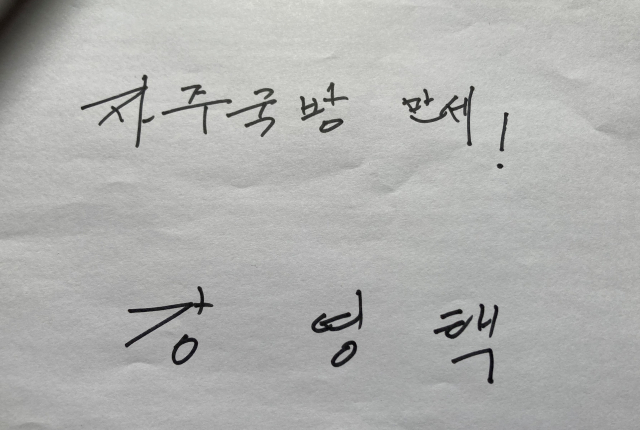 자주국방 만세!
강영택